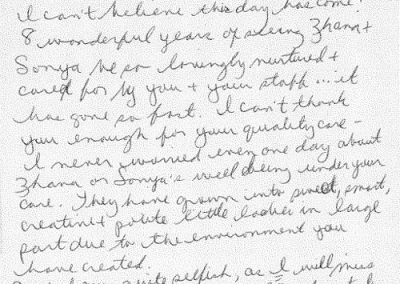 I can't believe this day has come!
8 wonderful years of seeing Zhana +
Sonya be so lovingly nurtured +
cared for by you + your staff ... it
has gone so fast. I can't thank
you enough for your quality care -
I never worried even one day about
Zhana or Sonya's well being under your
care. They have grown into sweet, smart,
creative + polite little ladies in large
part due to the environment you
have created.
quite selfish, as I will miss